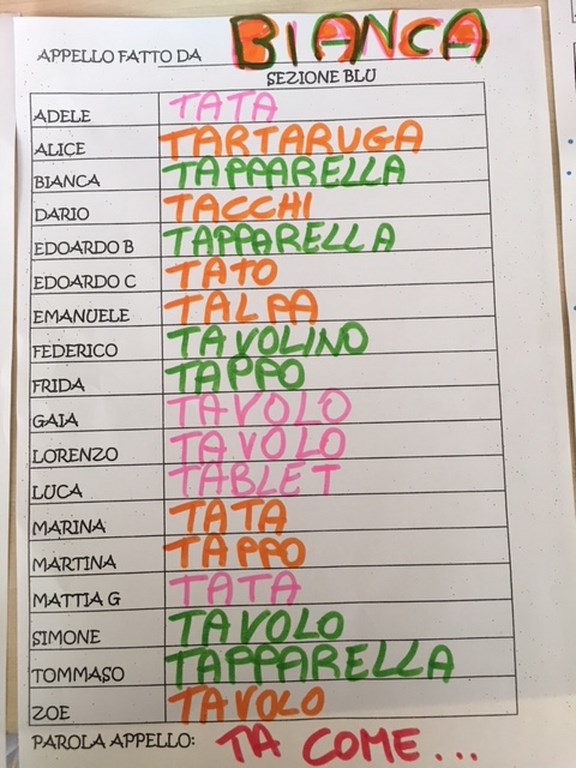 APPELLO FATTO DA BIANCA
SEZIONE BLU
ADELE TATA
ALICE TARTARUGA
BIANCA TAPPARELLA
DARIO TACCHI
EDOARDO B TAPPARELLA
EDOARDO C TATO
EMANUELE TALPA
FEDERICO TAVOLINO
FRIDA TAPPO
GAIA TAVOLO
LORENZO TAVOLO
LUCA TABLET
MARINA TATA
MARTINA TAPPO
MATTIA G TATA
SIMONE TAVOLO
TOMMASO TAPPARELLA
ZOE TAVOLO
PAROLA APPELLO: TA COME...